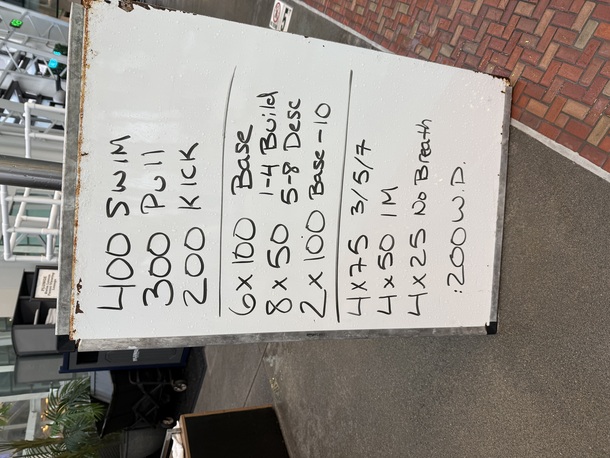 400 SWIM
300 Pull
200 KICK
6x100 Base
8x50 1-4 Build
5-8 Desc
2x100 Base-10
4x75 3/5/7
4x50 IM
4x25 No Breath
:200 W.D.